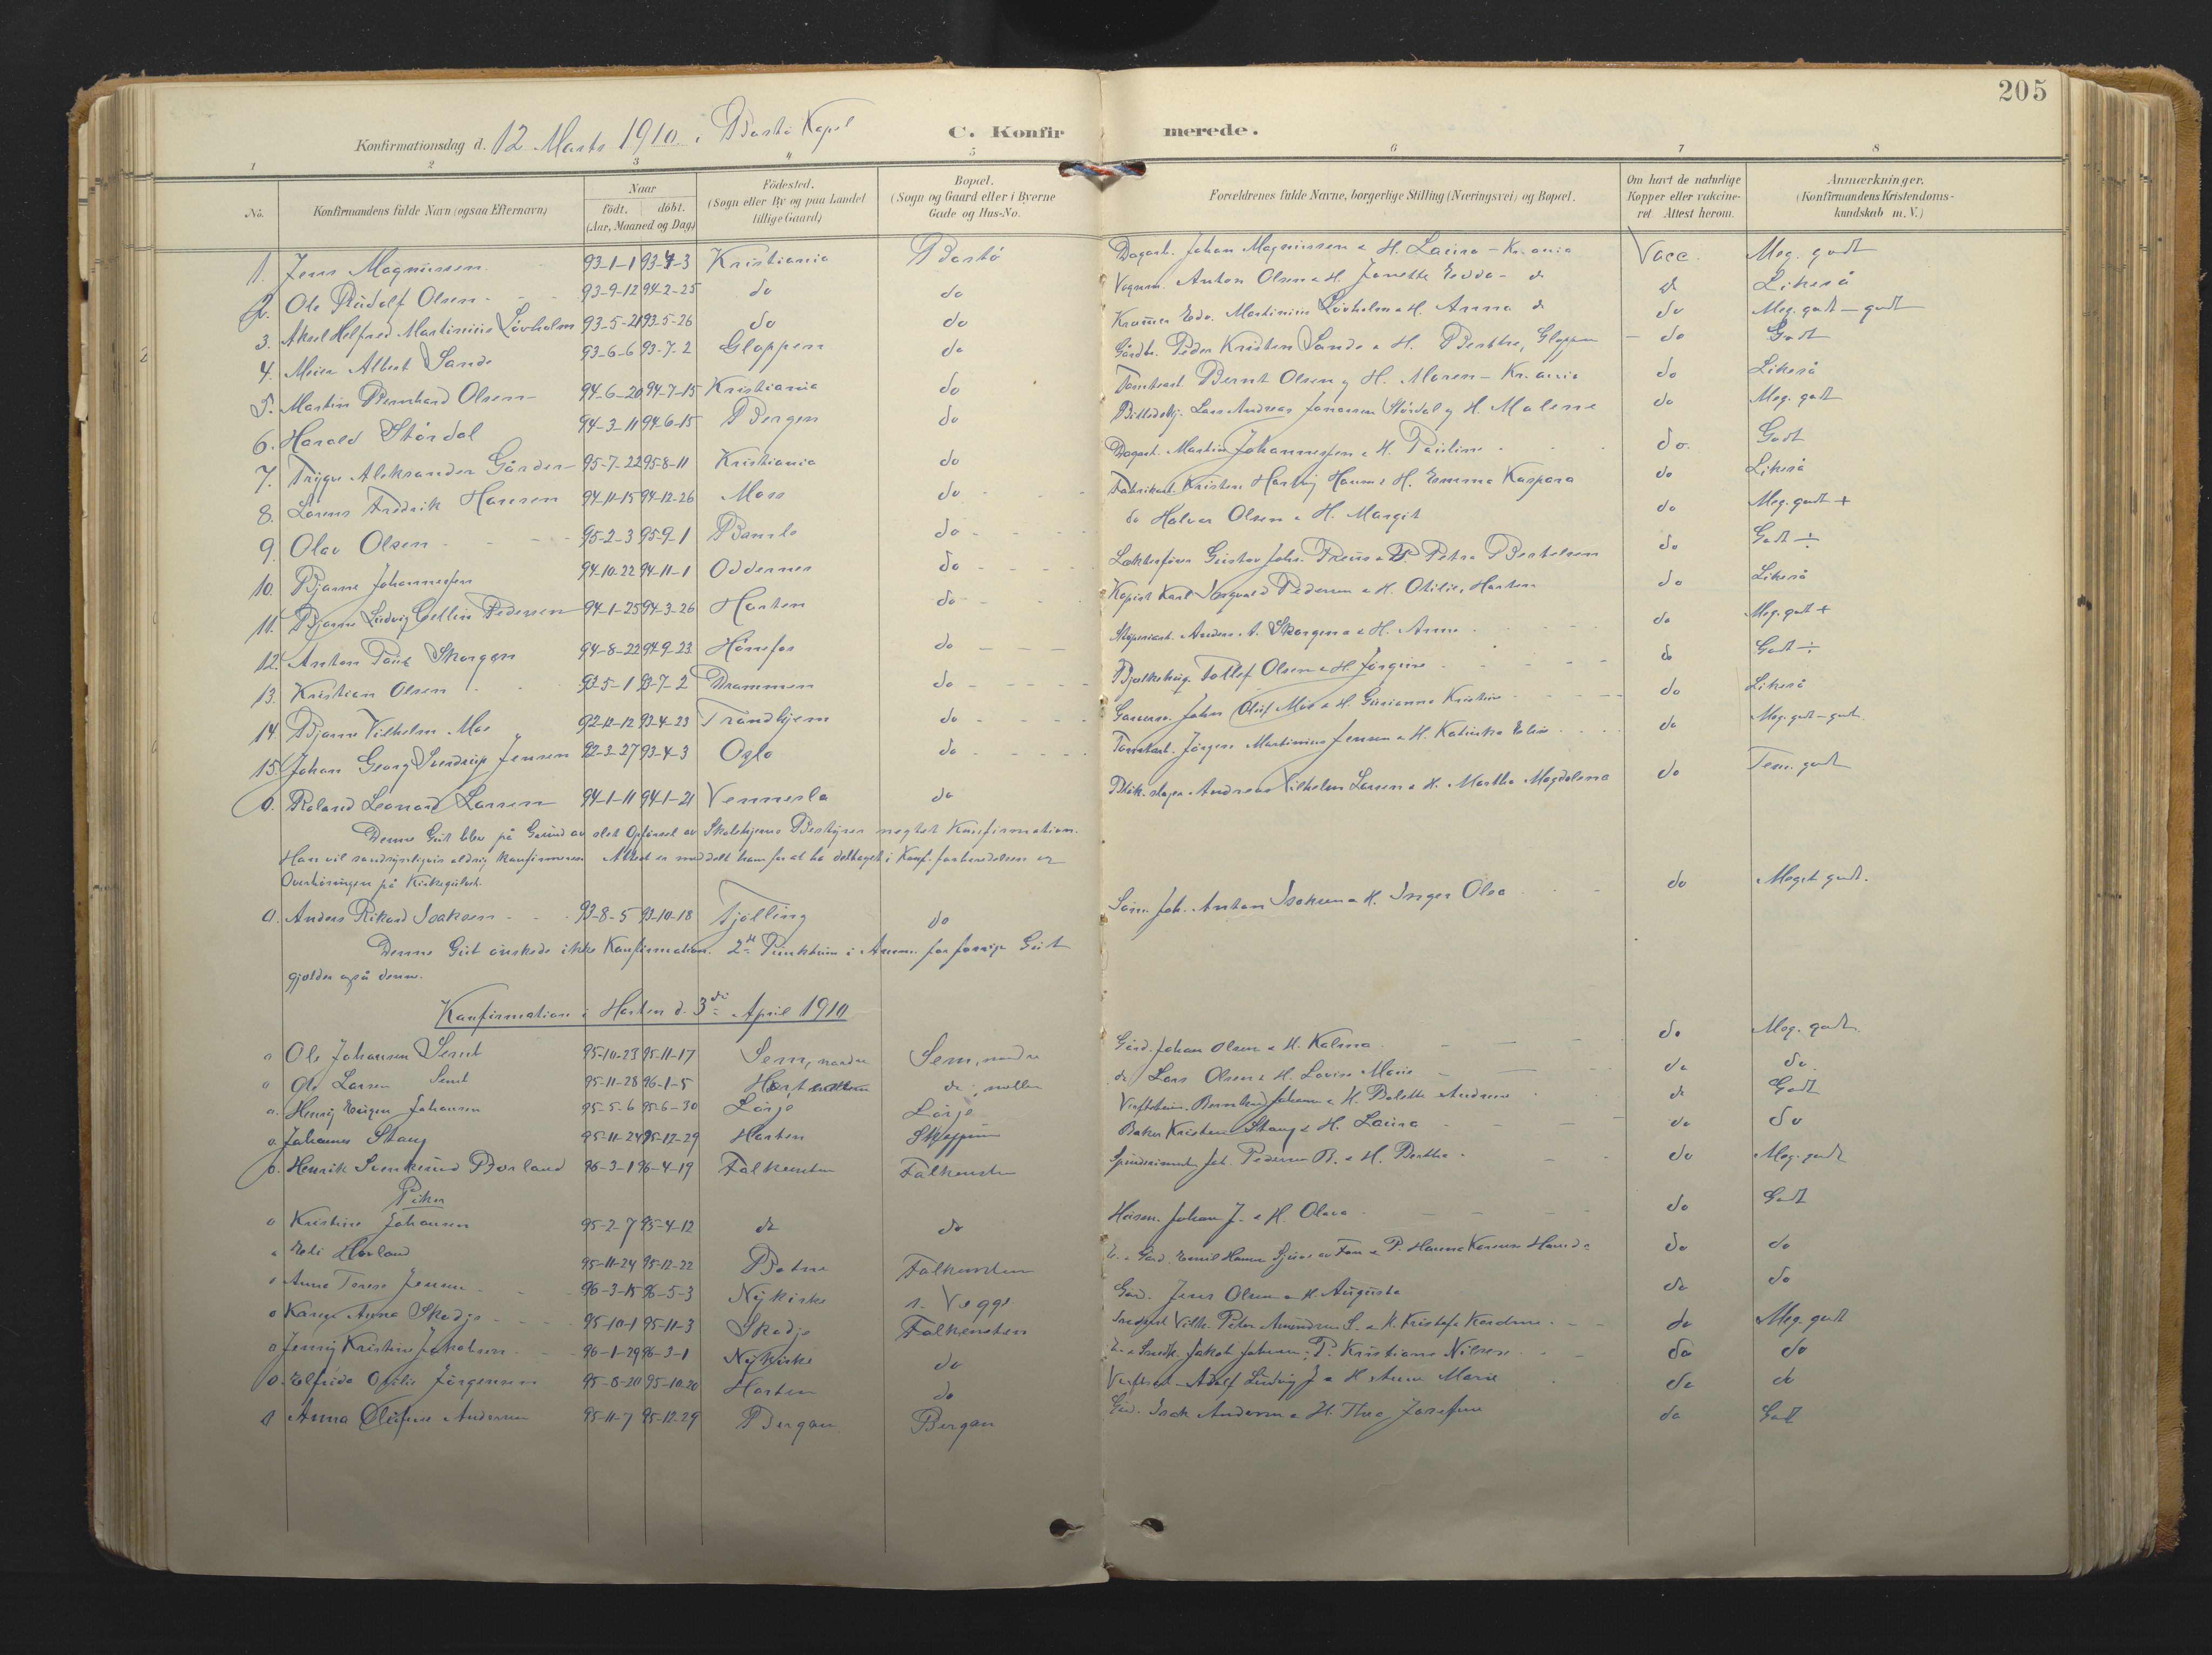 205
Konfirmationsdag d. 12 Marts 1910 i Bastø Kapel C. Konfirmerede.
1 2 3 4 5 6 7 8
No. Konfirmandens fulde Navn (ogsaa Efternavn) Naar født. døbt. (Aar, Maaned og Dag) Fødested. (Sogn eller By og paa Landet tillige Gaard) Bopæl. (Sogn og Gaard eller i Byerne Gade og Hus-No. Forældrenes fulde Navne, borgerlige Stilling (Næringsvei) og Bopæl. Om havt de naturlige Kopper eller vakcineret. Attest herom. Anmærkninger. (Konfirmandens Kristendomskundskab m. V.)
1. Jens Magnussen 93-1-1 93-4-3 Kristiania Bastø Dagarb. Johan Magnussen & H. Laura - Kr.ania Vacc. Meg. godt
2. Ole Rudolf Olsen 93-9-12 94-2-25 do do Vognm. Anton Olsen & H. Janette Hedda - do do Likeså
3. Aksel Helfred Martinius Løvholm 93-5-21 93-5-26 do do Edv. Martinius Løvholm & H. Anna do do Meg. godt - godt
4. Meier Albert Sande 93-6-6 93-7-2 Gloppen do Gårdbr. Peder Kristen Sande & H. Berthe, Gloppen - do Godt
5. Martin Bernhard Olsen 94-6-20 94-7-15 Kristiania do Tomtearb. Bernt Olsen og H. Maren - Kr.ania do Likeså
6. Harald Stördal 94-3-11 94-6-15 Bergen do Lars Andreas Stördal og H. Malene do Meg. godt
7. Trygve Aleksander Gårder 95-7-22 95-8-11 Kristiania do Dagarb. Martin Johannessen & H. Pauline do. Godt
8. Lorens Fredrik Hansen 94-11-15 94-12-26 Moss do Fabrikarb. Kristen Hartvig Hansen & H. Emma Kaspara do Likeså
9. Olav Olsen 95-2-3 95-9-1 Bamle do do Halvor Olsen & H. Margit do Meg. godt +
10. Bjarne Johannessen 94-10-22 94-11-1 Oddernes do Gustav Johs. & Petra Bertelsen do Godt ÷
11. Bjarne Ludvig Cellin Pedersen 94-1-25 94-3-26 Horten do Kopist Karl Pedersen & H. Otilie, Horten do Likeså
12. Anton Paul Skorgen 94-8-22 94-9-23 Hönefos do Anders A. Skorgen & H. Anne do Meg. godt +
13. Kristian Olsen 93-5-1 93-7-2 Drammen do Tollef Olsen & H. Jörgine do Godt ÷
14. Bjarne Vilhelm Moe 92-12-12 93-4-23 Trondhjem do Johan Oluf Moe & H. Gurianna Kristine do Likeså
15. Johan Georg Sverdrup Jensen 92-3-27 93-4-3 Oslo do Tomtearb. Jörgen Martinius Jensen & H. Katinka Elise do Meg. godt - godt
0. Roland Leonard Larsen 94-1-11 94-1-21 Vennesla do Blik.slager Andreas Vilhelm Larsen & H. Martha Magdalena do Tem. godt
Denne Gut blev på Grund av slet Opförsel av Skolehjems Bestyrer negtet Konfirmation.
Han vil sandsynligvis aldrig konfirmeres. Attest er meddelt ham for at ha deltaget i Konf. forberedelsen og
Overhöringen på Kirkegulvet.
0. Anders Rikard Isaksen 93-8-5 93-10-18 Tjölling do Joh. Anton Isaksen & H. Inger Olea do Meget godt.
Denne Gut önskede ikke Konfirmation. 2det Punktum i Anm. for forrige Gut
gjælder også denne.
Konfirmation i Horten d. 3die April 1910
0 Ole Johansen Semb 95-10-23 95-11-17 Sem, nordre Sem, nordre Gårdb. Johan Olsen & H. Kalma do Meg. godt.
0 Ole Larsen Semb 95-11-28 96-1-5 do, mellem do Lars Olsen & H. Lovise Marie do do.
0. Henry Eugen Johansen 95-5-6 95-6-30 Lörje Lörje Bernhard Johansen & H. Bolette Andrine do Godt
0 Johannes Stang 95-11-24 95-12-29 Horten Skoppum Baker Kristen Stang & H. Laura do do
0. Henrik Svenkerud Borland 96-3-1 96-4-19 Falkensten Falkensten Joh. Pedersen B. & H. Berthe do Meg. godt
Piker
0 Kristine Johansen 95-2-7 95-4-12 do do Husm. Johan J. & H. Olava do Godt
0 Hovland 95-11-24 95-12-22 Botne Falkensten Emil Hansen do do
0 Anna Terese Jensen 96-3-15 96-5-3 Nykirke n. Vegge Gårdb. Jens Olsen & H. Augusta do do
0 Karen Anna Skadje 95-10-1 95-11-3 Skadje Falkensten Vilh. Peter S. & H. do Meg. godt
0 Jenny Kristine Jakobsen 96-1-29 96-3-1 Nykirke do Jakob Johansen, P. Kristiane Nilsen do do
0. Elfrida Otilie Jörgensen 95-8-20 95-10-20 Horten do Adolf Ludvig J & H. Anne Marie do do
0 Anna Olufine Andersen 95-11-7 95-12-29 Bergan Bergan Gårdb. Isak Andersen & H. Thea Josefine do Godt